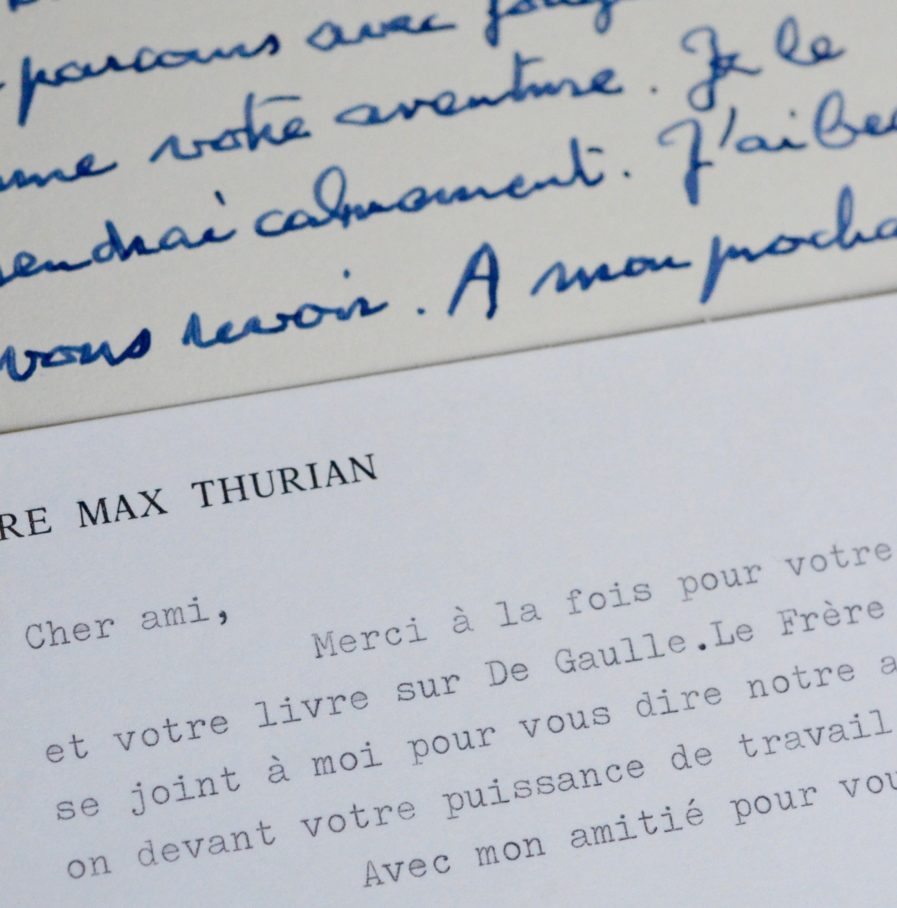 parcours avec
votre aventure. Je le
calmement. J'ai
vous revoir. A mon
RE MAX THURIAN
Cher ami,
Merci à la fois pour votre
et votre livre sur De Gaulle.Le Frère
se joint à moi pour vous dire notre a
on devant votre puissance de travail
Avec mon amitié pour vou